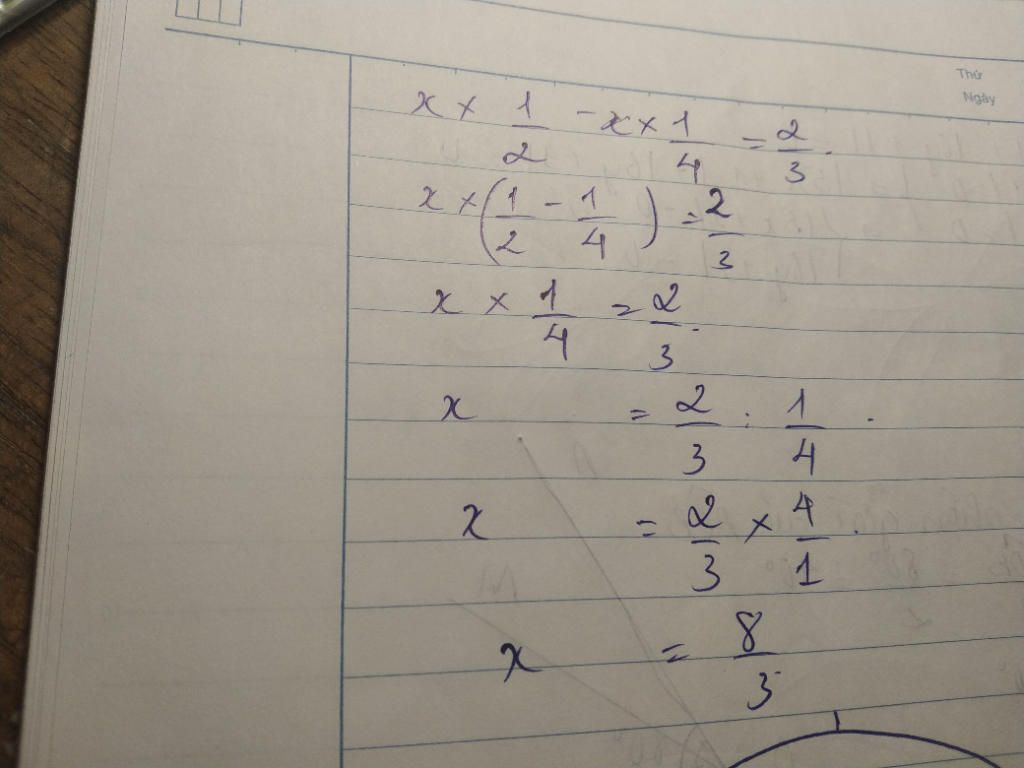 Thứ
Ngày
x × 1/2 - x × 1/4 = 2/3.
x × (1/2 - 1/4) = 2/3
x × 1/4 = 2/3.
x = 2/3 : 1/4.
x = 2/3 × 4/1.
x = 8/3